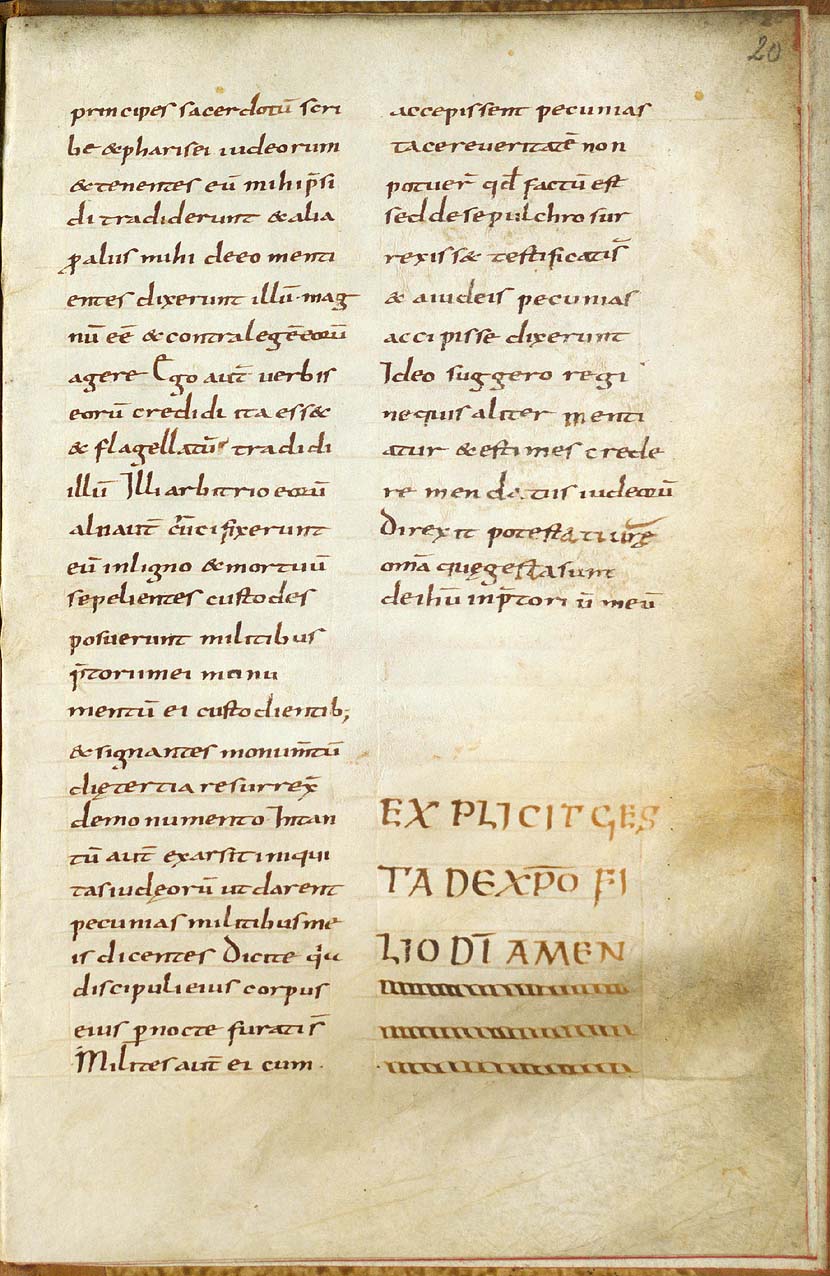 20
principes sacerdotū scri
be &pharisei iudeorum
&tenentes eū mihi p̄si
di tradiderunt &alia
ꝓ aliis mihi deeo menti
entes dixerunt illū mag
nū eē &contralegē eorū
agere Ego aut̄ uerbis
eorū credidi ita ess&
& flagellatū tradidi
illū Illi arbitrio eorū
aln aut̄ crucifixerunt
eū inligno &mortuū
sepelientes custodes
posuerunt militibus
p̄torii mei monu
mentū ei custodientib;
&signantes monum̄tū
dię tertia resurrex̄
demonumento Intan
tū aut̄ exarsit iniqui
tas iudęorū ut darent
pecunias militibus me
is dicentes Dicite qiu
discipuli eius corpus
eius pnocte furatis̄
Milites aut̄ ei cum
accepissent pecunias
tacereueritatē non
potuer̄ qd̄ factū est
sed desepulchro sur
rexiss& testificatis̄
& aiudeis pecunias
accipisse dixerunt
Ideo suggero regi
nequis aliter menti
atur &estimes crede
re mendatiis iudeorū
Direxit potestati urę
om̄a quęgestasunt
deihū inp̄tori ū meū
EXPLICIT GES
TA DEXP̄O FI
LIO DĪ AMEN